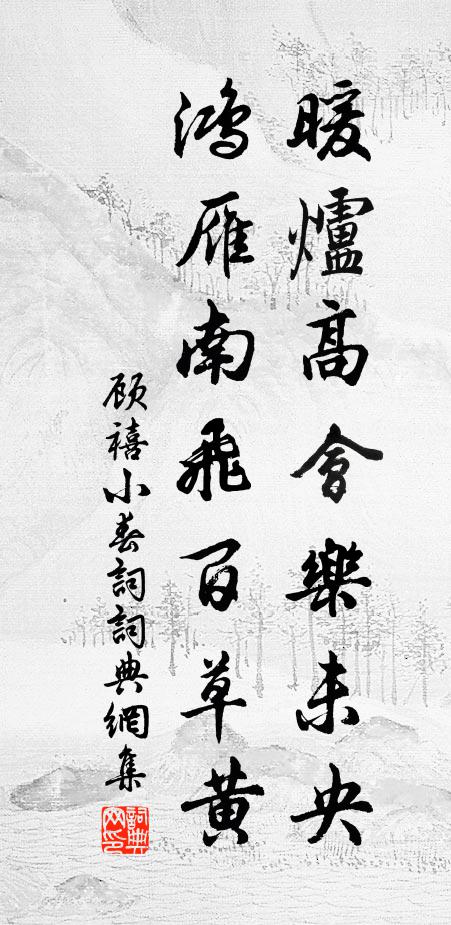 暖爐高會樂未央
鴻雁南飛百草黃
顾禧小春詞詞典網集
詞典网印